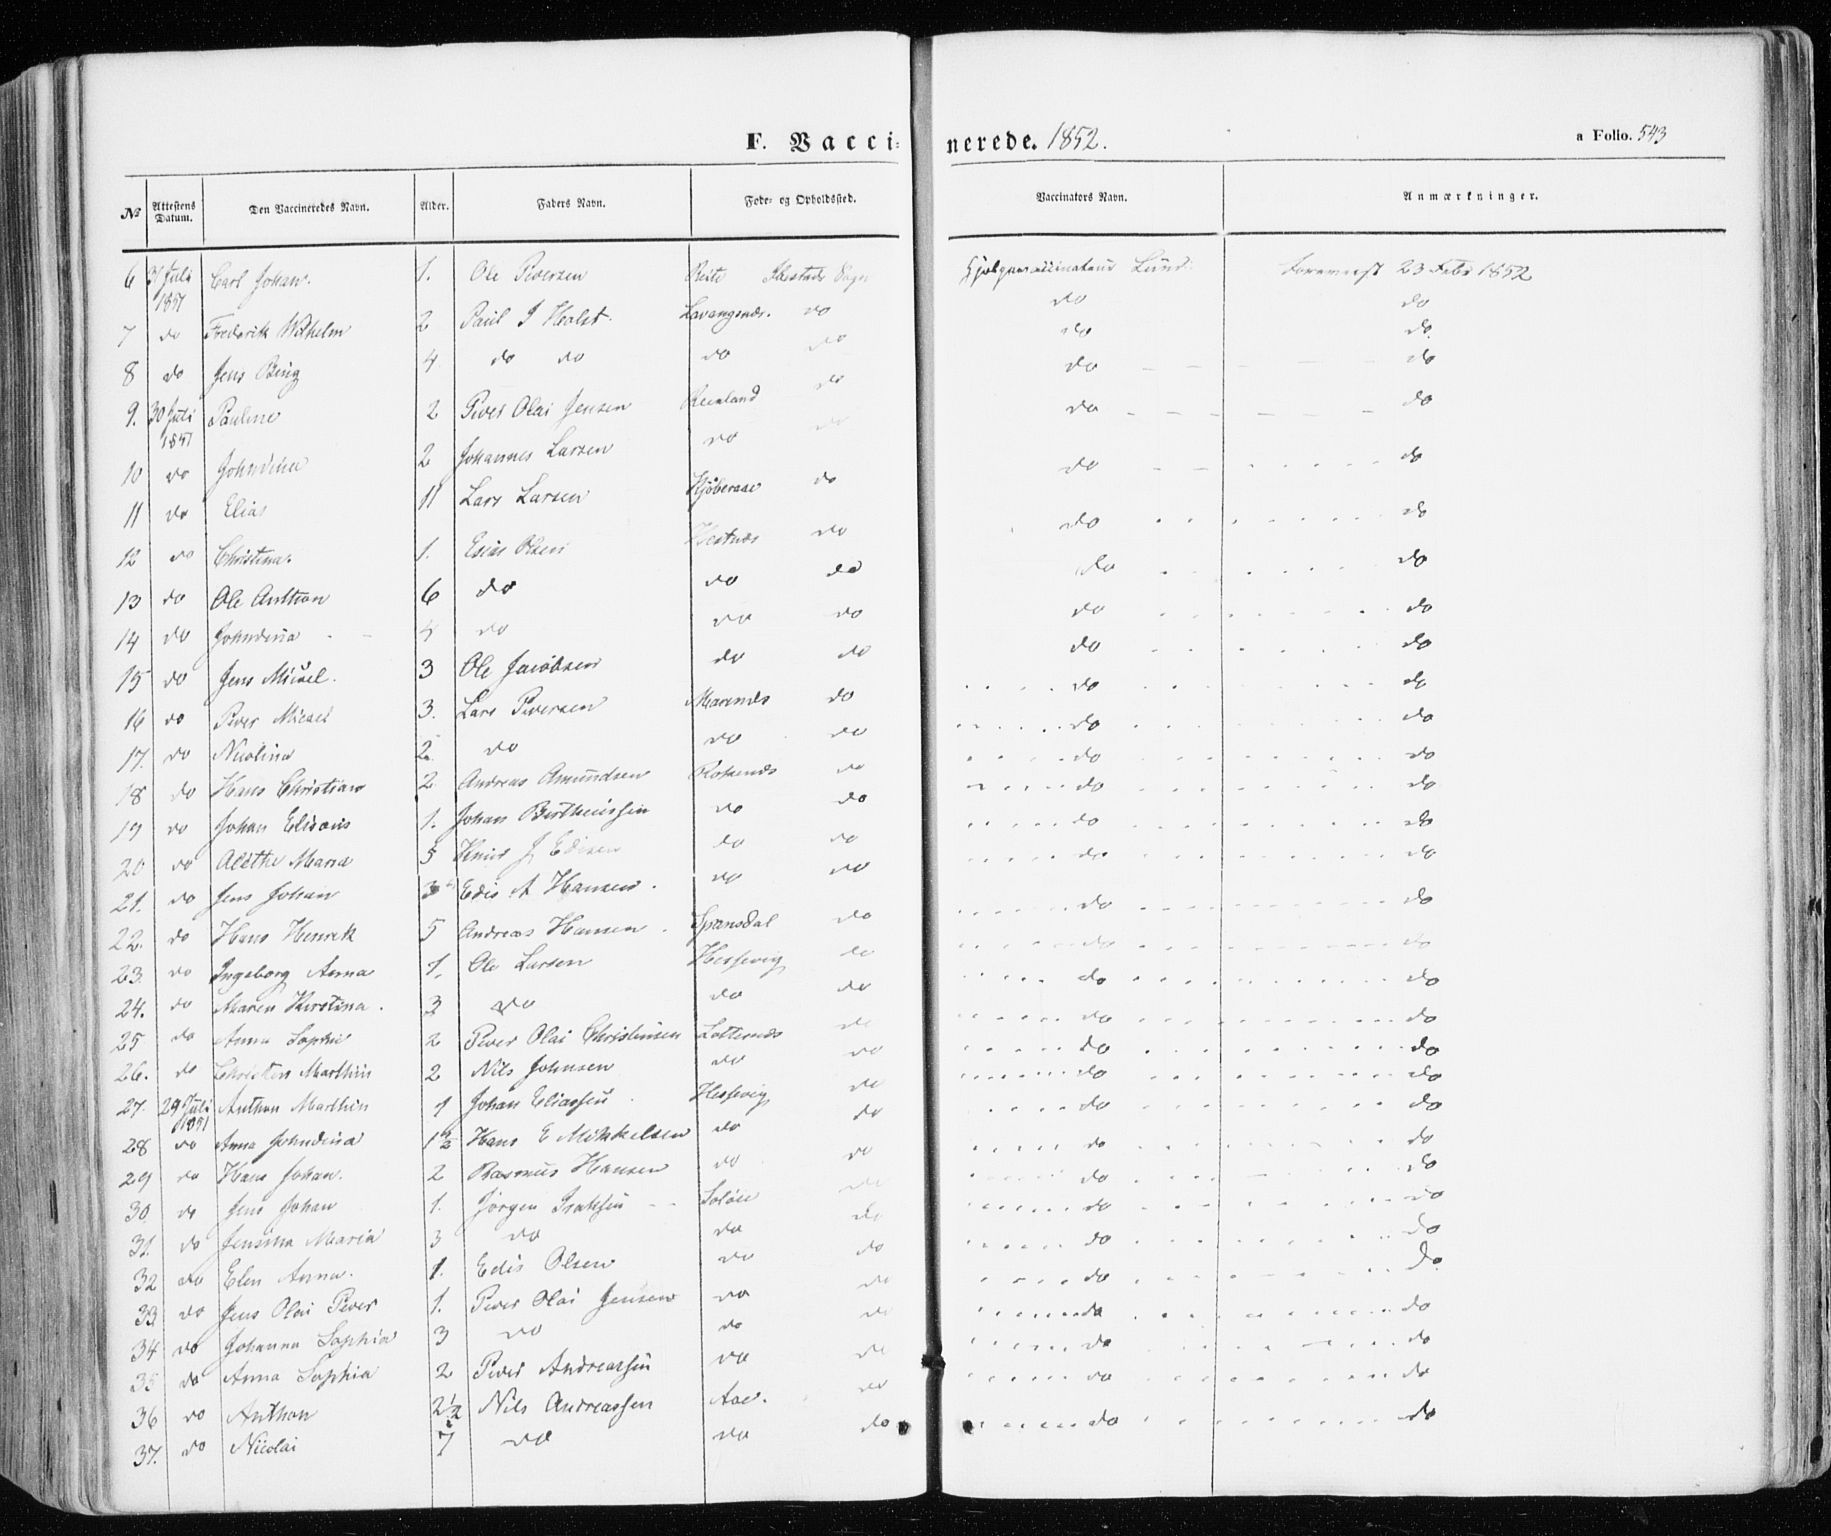 F. Vaccinerede. 1852. a Folio. 543
No Attestens Datum. Den Vaccineredes Navn. Alder. Faders Navn. Føde- og Opholdssted. Vaccinators Navn. Anmærkninger.
6 31 Juli 1851 Carl Johan. 1. Ole Peversen Ibestads Sogn Lund 23 Febr 1852
7 do Frederik Wilhelm 2 Paul J Holst. Lavangsnæs. do do do
8 do Jens Bing 4 do do do do do do
9. 30 Juli 1851 Pauline 2 Peder Olai Jensen do do do
10 do Johndina 2 Johannes Larsen do do do do
11 do Elias 11 Lars Larsen do do do
12 do Christina. 1. Esias Olsen Hestnæs do do do
13 do Ole Anthon 6 do do do do do
14 do Johndina 4 do do do do do
15 do Jens Micael. 3 Ole Jacobsen do do do do
16 do Peder Micael 3. Lars Pedersen do do do
17. do Nicolina 2 do do do do do
18 do Hans Christian 2 Andreas Amundsen do do do
19 do Johan Elisæus 1. Johan do do do do
20 do Alethe Maria 5 Knud J Edisen do do do do
21. do Jens Johan 3 Edis A Hansen. do do do do
22. do Hans Henrik 5 Andreas Hansen. Spansdal do do do
23. do Ingeborg Anna 1. Ole Larsen Hessevig do do do
24. do Maren Kirstina. 3 do do do do do
25 do Anna Sophie 2 Peder Olai Christensen do do do
26. do Christen Marthin 2 Nils Johnsen do do do do
27. 29 Juli 1851 Anthon Marthin 1 Johan Eliassen. Hessevig do do do
28 do Anna Johndina 1½ Hans E Mikkelsen do do do do
29 do Hans Johan. 2 Rasmus Hansen do do do do
30 do Jens Johan 1. Jørgen Isaksen do do do
31. do Jensina Maria 3 do do do do do
32 do Elen Anna. 1. Edis Olsen do do do do
33 do Jens Olai Peder 1. Peder Olai Jensen do do do do
34 do Johanna Sophia 3 do do do do do
35 do Anna Sophia 2 Peder Andreassen do do do do
36 do Anthon 2½ Nils Andreassen Aae. do do do
37. do Nicolai 7 do do do do do